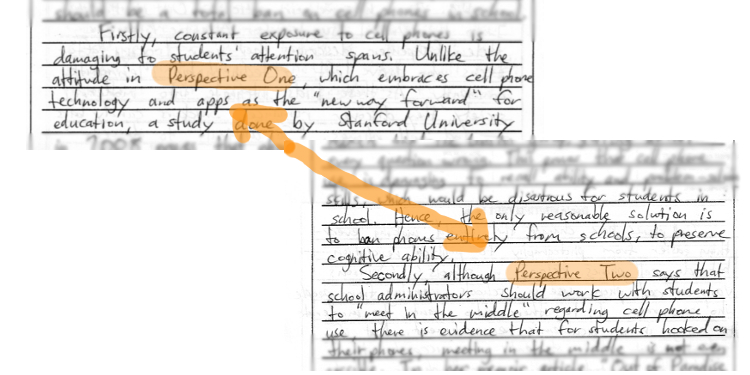 should be a total ban on cell phones in school.
Firstly, constant exposure to cell phones is
damaging to students' attention spans. Unlike the
attitude in Perspective One, which embraces cell phone
technology and apps as the "new way forward" for
education, a study done by Stanford University
in 2008
that cell phone
skills, which would be disastrous for students in
school. Hence, the only reasonable solution is
to ban phones entirely from schools, to preserve
cognitive ability.
Secondly, although Perspective Two says that
school administrators should work with students
to "meet in the middle" regarding cell phone
use, there is evidence that for students hooked on
their phones, meeting in the middle is not even
"Out of Paradise